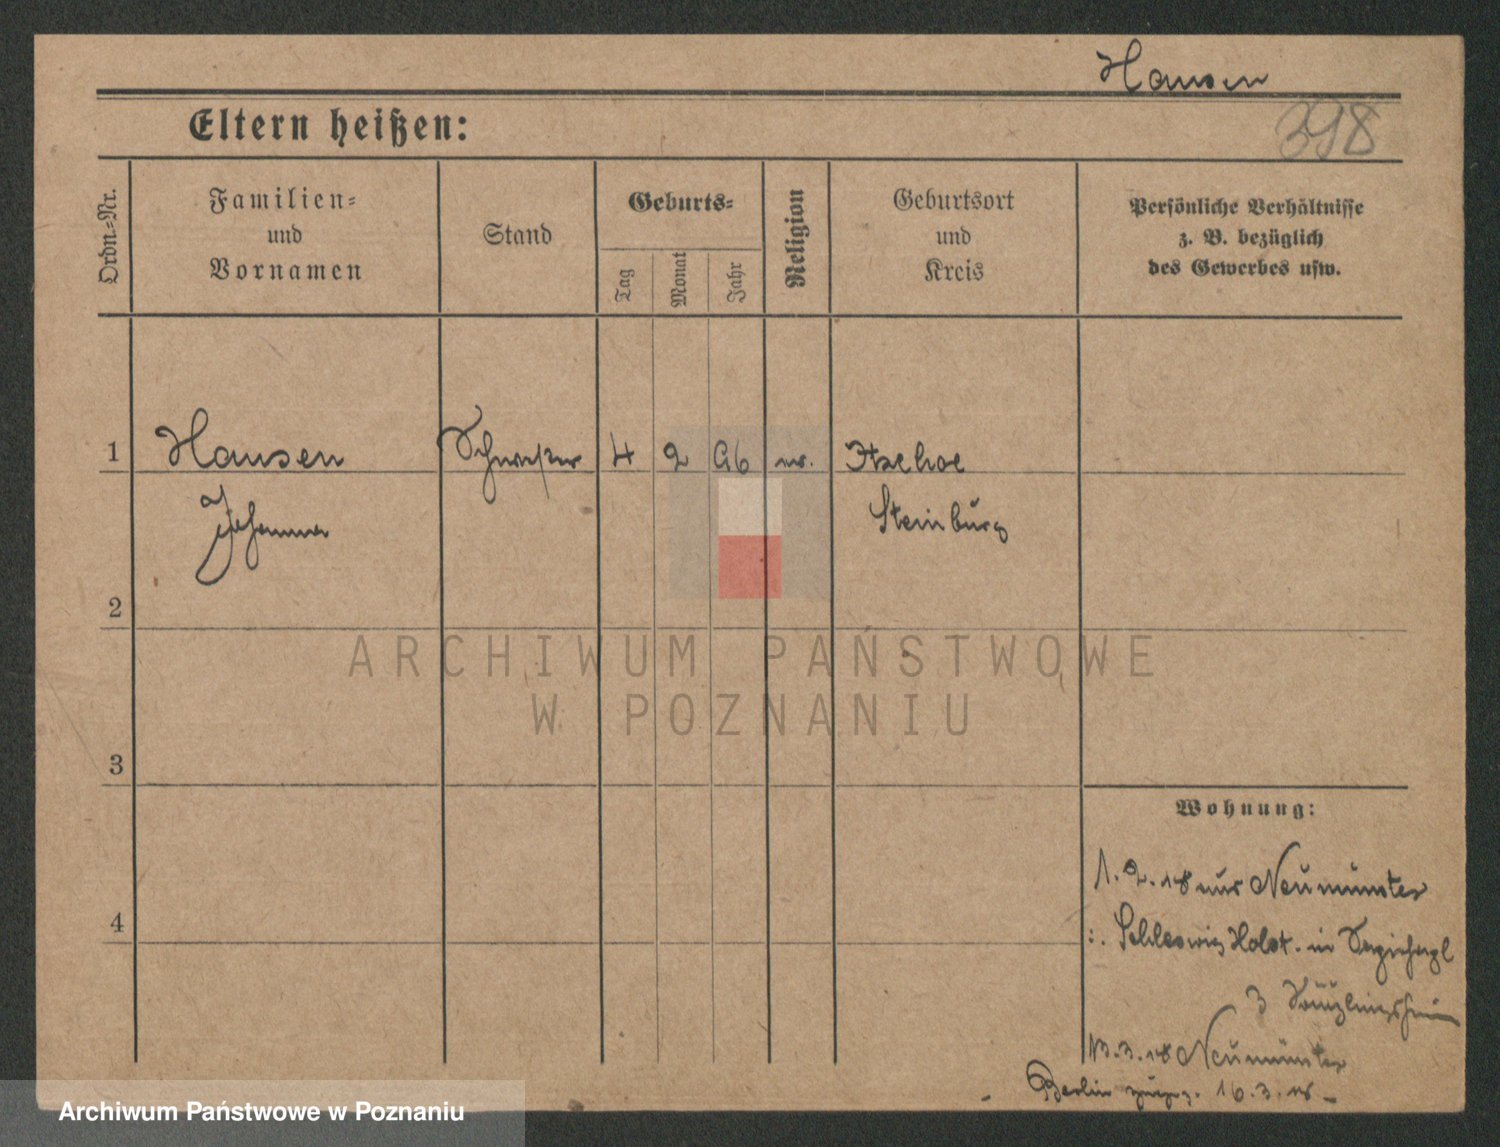 Hansen
398
Eltern heißen:
Ordn.=Nr.
Familien=
und
Vornamen
Stand
Geburts=
Tag
Monat
Jahr
Religion
Geburtsort
und
Kreis
Persönliche Verhältnisse
z. B. bezüglich
des Gewerbes usw.
1 Hansen Schwester 4 2 96 Itzehoe
Johanna Steinburg
2
3
4
Wohnung:
1. 2. 18 aus Neumünster
Schleswig Holst. in
3 Säuglingsheim
13. 3. 18 Neumünster
Berlin 16. 3. 18
ARCHIWUM PAŃSTWOWE
W POZNANIU
Archiwum Państwowe w Poznaniu